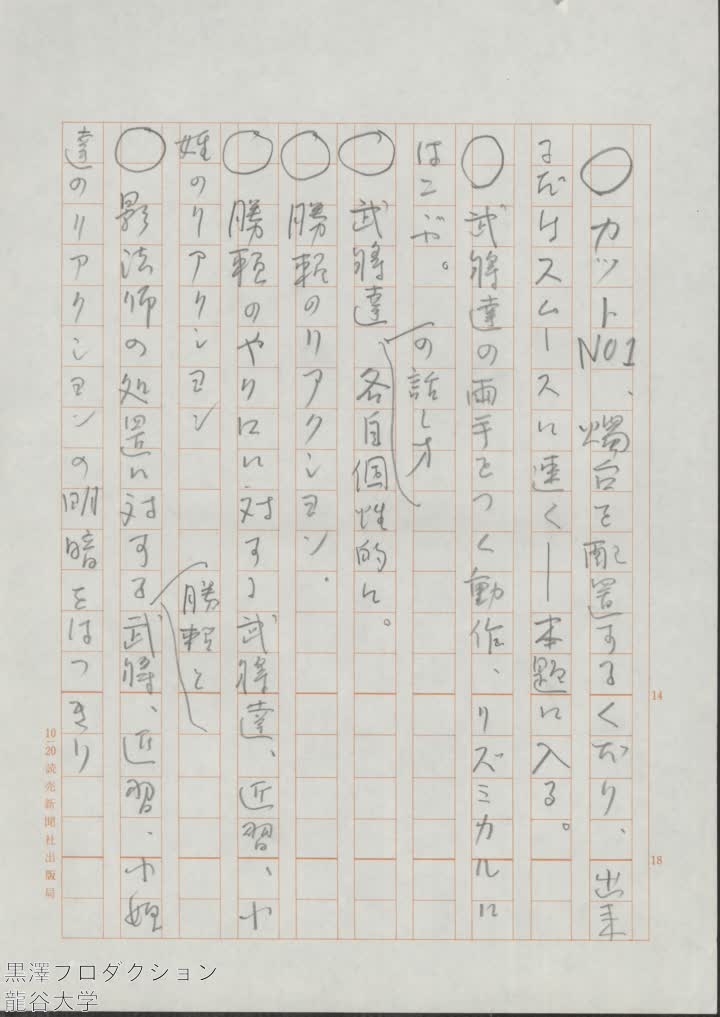 〇カットNO1、燭台を配置するくだり、出来
るだけスムースに速く―本題に入る。
〇武将達の両手をつく動作、リズミカルに
はこぶ。
の話し方
〇武将達 各自個性的に。
〇勝頼のリアクション．
〇勝頼のやり口に対する武将達、近習、小
姓のリアクション
勝頼と
〇影法師の処置に対する武将、近習、小姓
達のリアクションの明暗をはっきり
14
18
10 20 読売新聞社出版局
黒澤プロダクション
龍谷大学